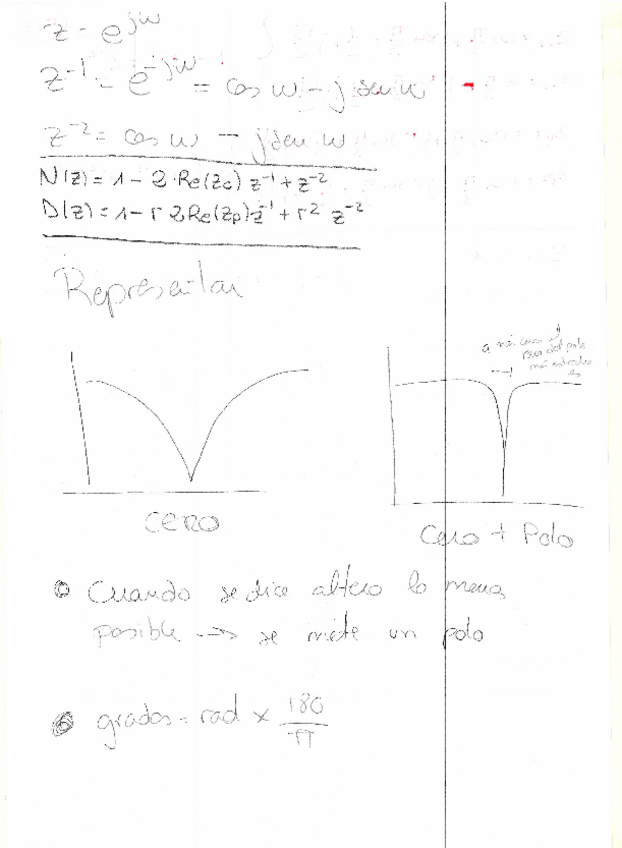 z = e^jω
z^-1 = e^-jω = cos ω - j sen ω
z^-2 = cos ω - j sen ω
N(z) = 1 - 2·Re(zc) z^-1 + z^-2
D(z) = 1 - r 2Re(zp) z^-1 + r^2 z^-2
Representar
a más cerca
del polo
más estrecho
es
cero
Cero + Polo
Cuando se dice altero lo menos
posible -> se mete un polo
grados = rad × 180/π